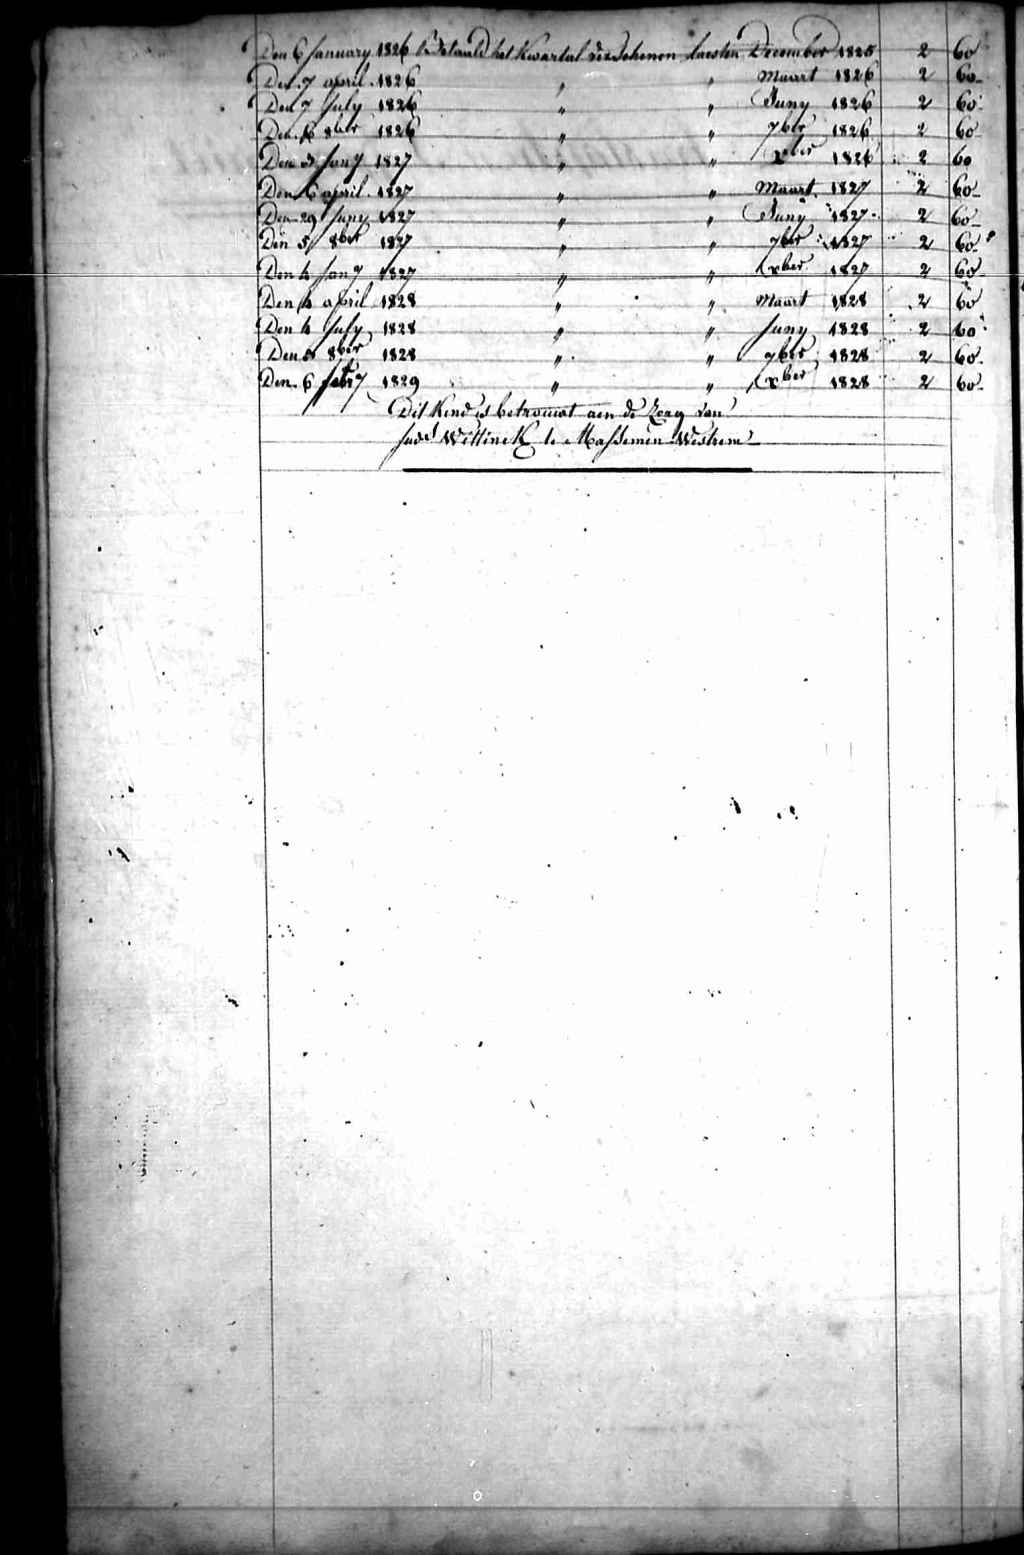 Den 6 January 1826 betaald het Kwartal verschenen laesten December 1825 2 60
Den 7 april 1826 " " Maart 1826 2 60
Den 7 July 1826 " " Juny 1826 2 60
Den 6 8ber 1826 " " 7ber 1826 2 60
Den 5 Jany 1827 " " xber 1826 2 60
Den 6 april 1827 " " Maart 1827 2 60
Den 29 Juny 1827 " " Juny 1827 2 60
Den 5 8ber 1827 " " 7ber 1827 2 60
Den 4 Jany 1827 " " xber 1827 2 60
Den 4 april 1828 " " Maart 1828 2 60
Den 4 July 1828 " " Juny 1828 2 60
Den 8ber 1828 " " 7ber 1828 2 60
Den 6 1829 " " xber 1828 2 60
Dit Kind is betrouwt aen de Zorg van
Judl Wittinck te Massemen Westrem